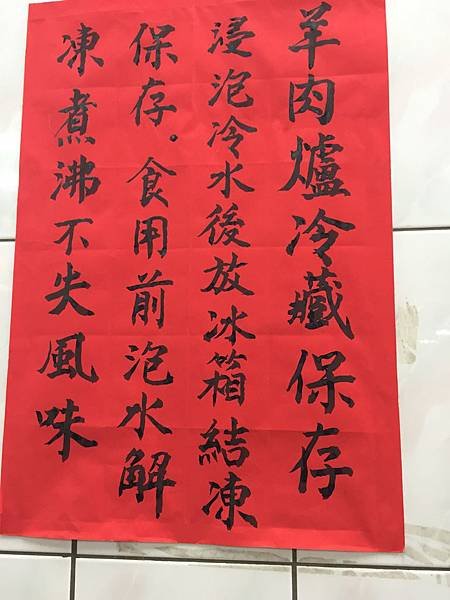 羊肉爐冷藏保存
浸泡冷水後放冰箱結凍
保存。食用前泡水解
凍煮沸不失風味